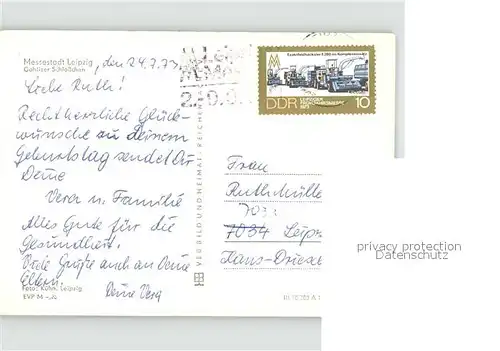 Messestadt Leipzig
Gohliser Schlößchen
, den 24.7.73
Liebe Ruth!
Recht herzliche Glück-
wünsche zu Deinem
Geburtstag sendet Dir
Deine
Vera u. Familie
Alles Gute für die
Gesundheit.
Viele Grüße auch an Deine
Eltern.
Deine Vera
Foto: Kühn, Leipzig
EVP M
VEB BILD UND HEIMAT REICHE
DDR
LEIPZIGER
FRÜHJAHRSMESSE
1973
10
Frau
Ruth Mülle
703
7034 Leipz
Hans-Driesc
privacy protection
Datenschutz